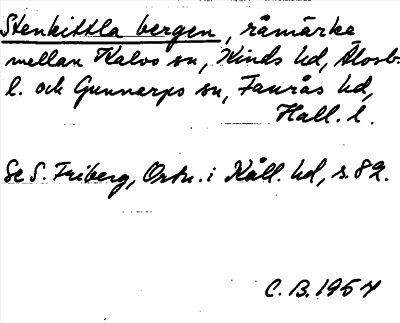 Stenkittla bergen, råmärke
mellan Kalvs sn, Kinds hd, Älvsb.
l. och Gunnarps sn, Faurås hd,
Hall. l.
Se S. Friberg, Ortn. i Kåll. hd, s. 82.
C. B. 1957